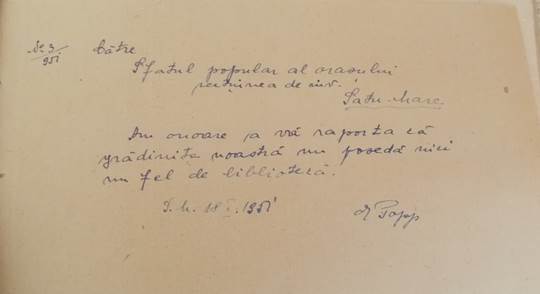 No 3/951 Către
Sfatul popular al orașului
secțiunea de înv.
Satu-Mare
Am onoare a vă raporta că
grădinița noastră nu posedă nici
un fel de bibliotecă.
S.M. 18 I. 1951 Papp